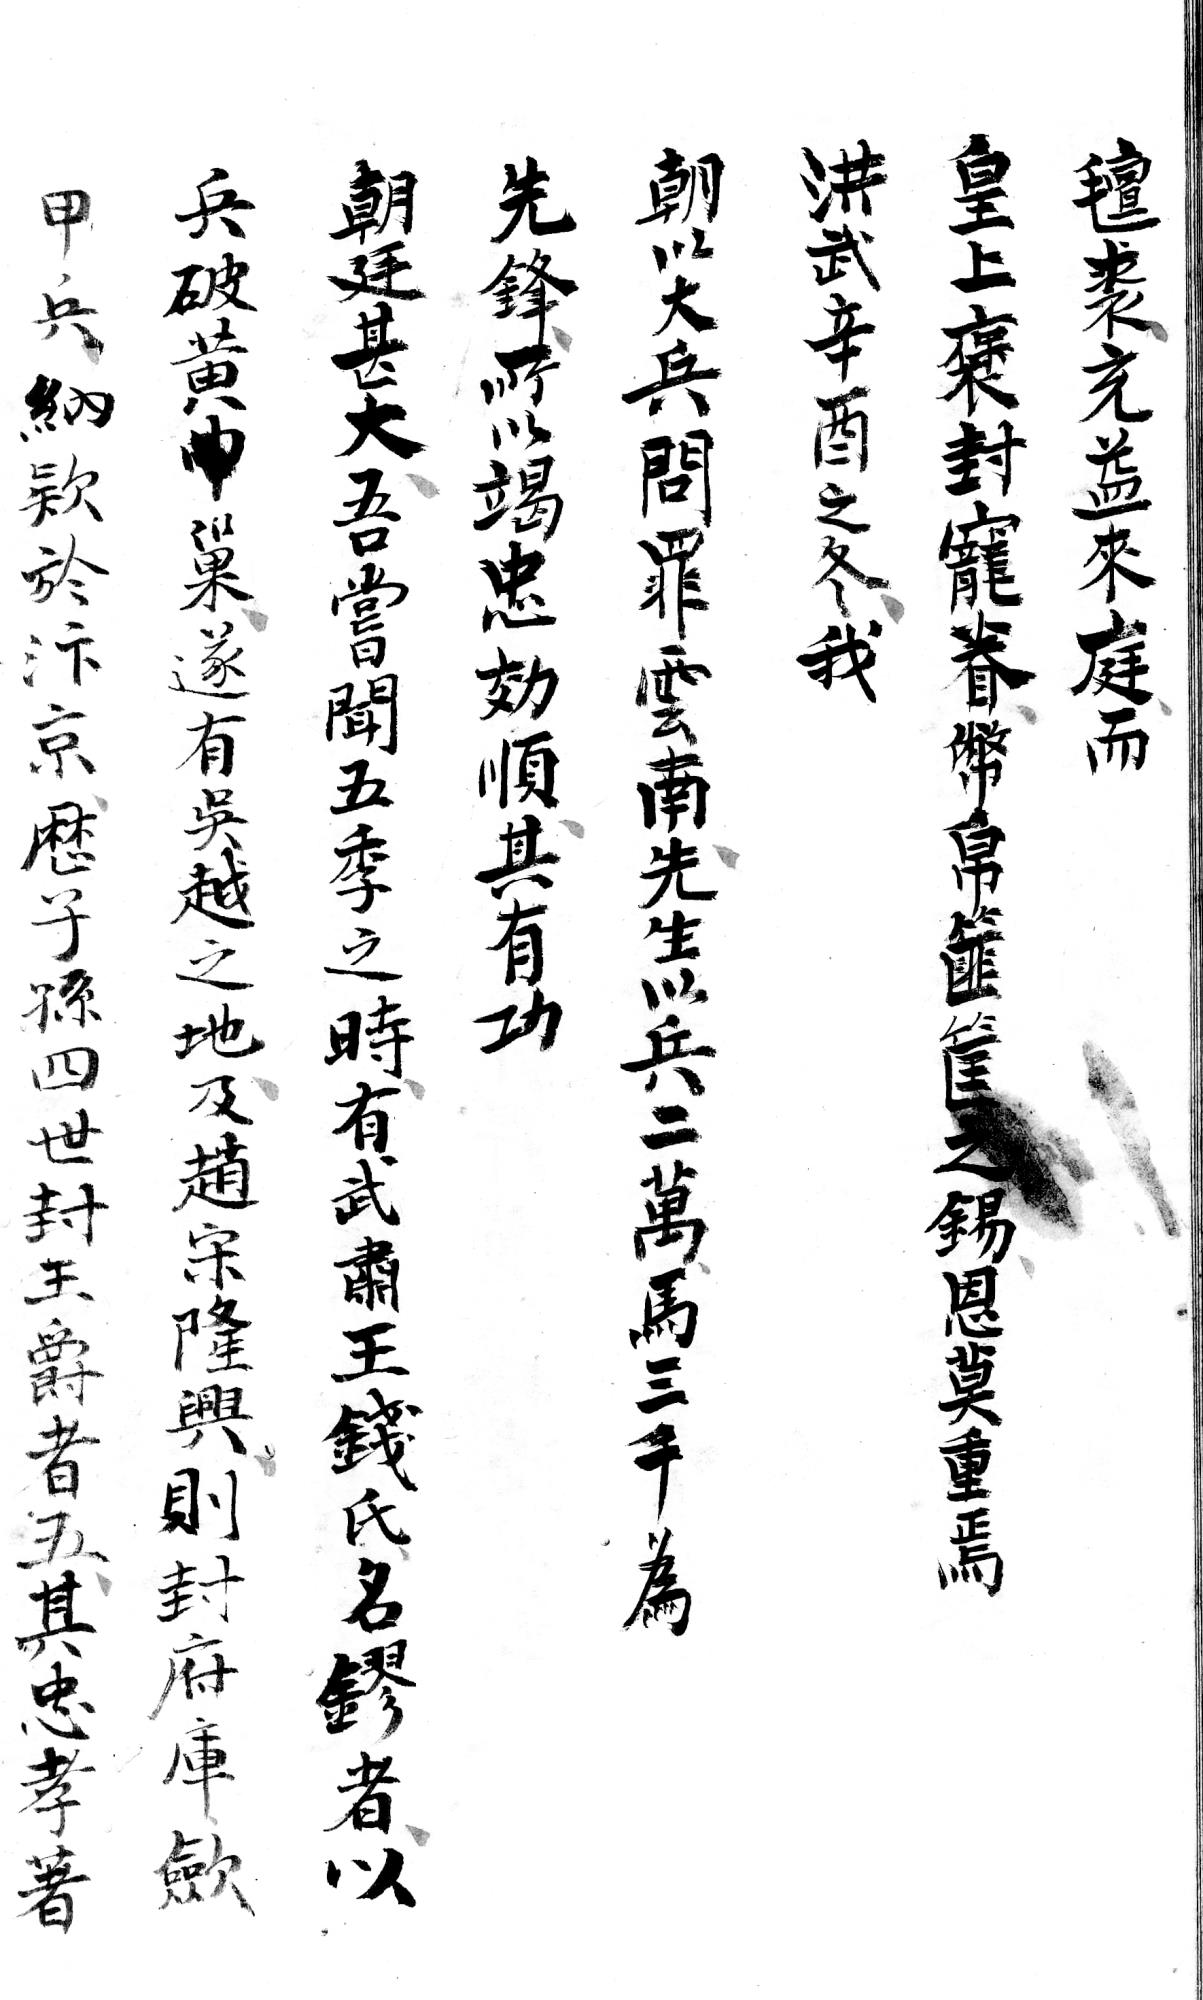 氊裘充益來庭而
皇上褒封寵眷幣帛篚筐之錫恩莫重焉
洪武辛酉之冬我
朝以大兵問罪雲南先生以兵二萬馬三千為
先鋒所以竭忠効順其有功
朝廷甚大吾嘗聞五季之時有武肅王錢氏名鏐者以
兵破黄巢遂有吳越之地及趙宋隆興則封府庫歛
甲兵納款於汴京歷子孫四世封王爵者五其忠孝著